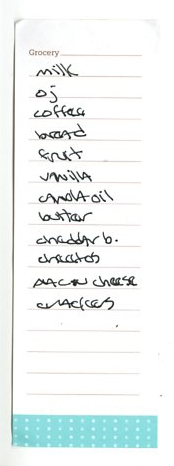 Grocery
milk
oj
coffee
bread
fruit
vanilla
canola oil
butter
cheddar b.
cheetos
mac n cheese
crackers